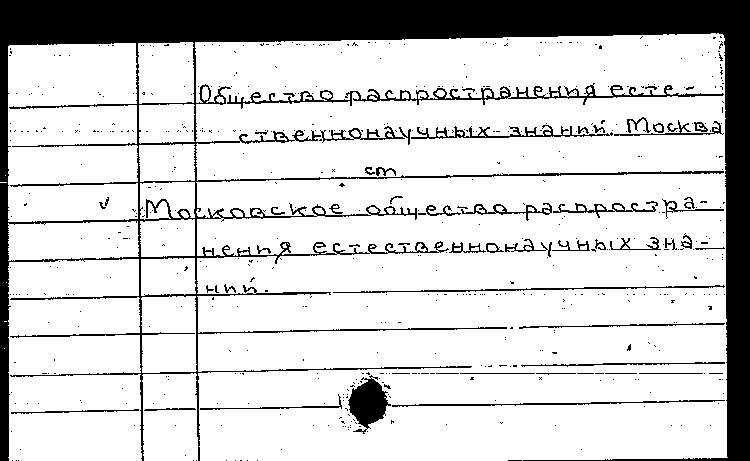 Общество распространения есте-
ственнонаучных знаний. Москва
см.
✓ Московское общество распростра-
нения естественнонаучных зна-
ний.